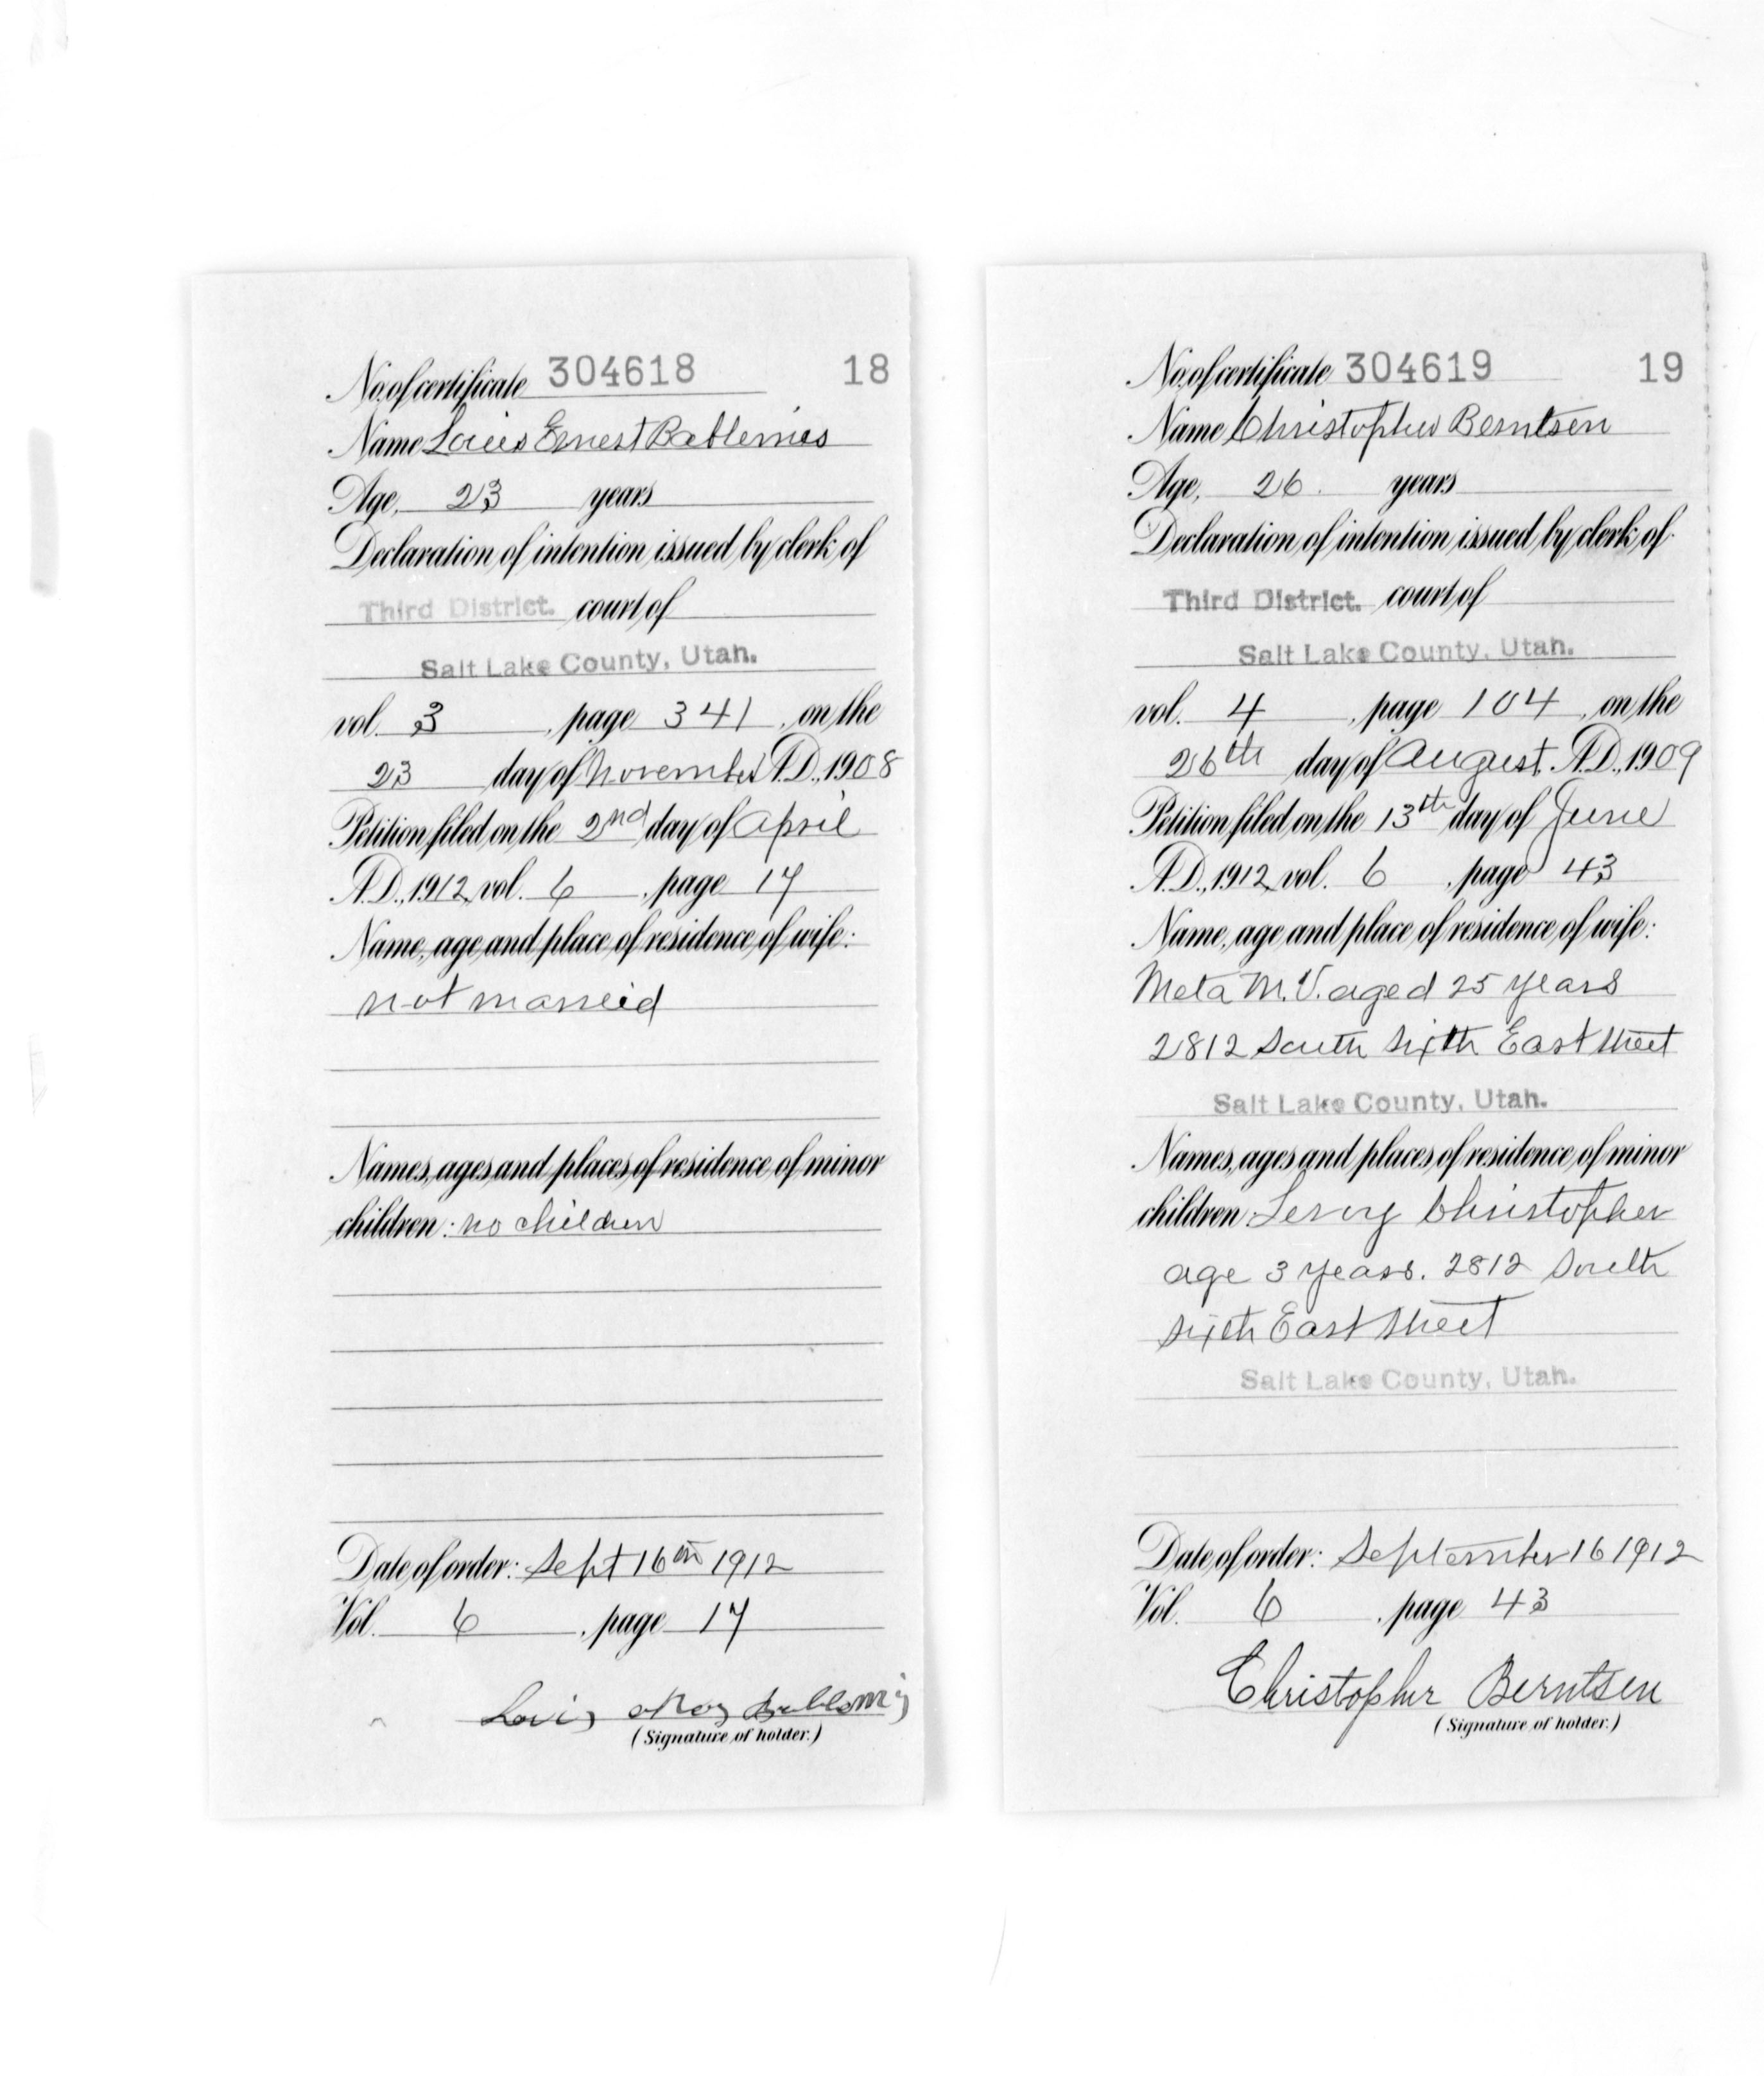 No. of certificate 304618 18
Name Louis Ernest
Age, 23 years
Declaration of intention issued by clerk of
Third District. court of
Salt Lake County, Utah.
vol. 3, page 341, on the
23 day of November A.D., 1908
Petition filed on the 2nd day of April
A.D., 1912, vol. 6, page 17
Name, age and place of residence of wife:
not marreid
Names, ages and places of residence of minor
children: no children
Date of order: Sept 16th 1912
Vol. 6, page 17
(Signature of holder.)
No. of certificate 304619 19
Name Christopher Berntsen
Age, 26. years
Declaration of intention issued by clerk of
Third District. court of
Salt Lake County, Utah.
vol. 4, page 104, on the
26th day of August. A.D., 1909
Petition filed on the 13th day of June
A.D., 1912, vol. 6, page 43
Name, age and place of residence of wife:
Meta M. V. aged 25 years
2812 South Sixth East Street
Salt Lake County, Utah.
Names, ages and places of residence of minor
children: Leroy Christopher
age 3 years. 2812 South
Sixth East Street
Salt Lake County, Utah.
Date of order: September 16 1912
Vol. 6, page 43
Christopher Berntsen
(Signature of holder.)